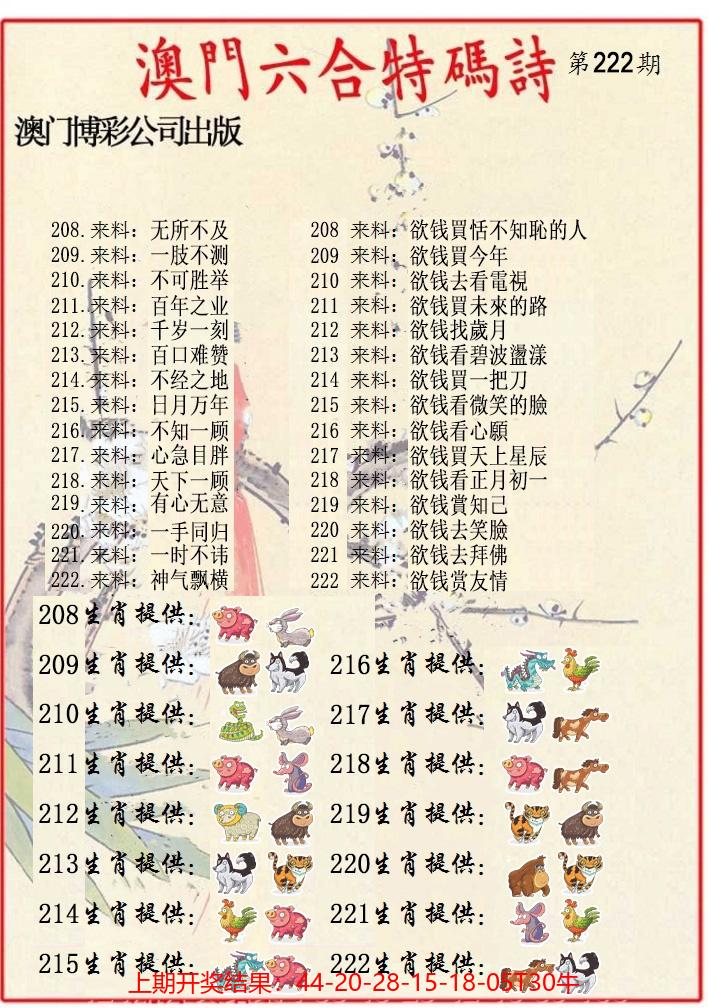 澳門六合特碼詩 第222期
澳门博彩公司出版
208.来料：无所不及
209.来料：一肢不测
210.来料：不可胜举
211.来料：百年之业
212.来料：千岁一刻
213.来料：百口难赞
214.来料：不经之地
215.来料：日月万年
216.来料：不知一顾
217.来料：心急目胖
218.来料：天下一顾
219.来料：有心无意
220.来料：一手同归
221.来料：一时不讳
222.来料：神气飘横
208 来料：欲钱買恬不知恥的人
209 来料：欲钱買今年
210 来料：欲钱去看電視
211 来料：欲钱買未來的路
212 来料：欲钱找歲月
213 来料：欲钱看碧波盪漾
214 来料：欲钱買一把刀
215 来料：欲钱看微笑的臉
216 来料：欲钱看心願
217 来料：欲钱買天上星辰
218 来料：欲钱看正月初一
219 来料：欲钱賞知己
220 来料：欲钱去笑臉
221 来料：欲钱去拜佛
222 来料：欲钱赏友情
208生肖提供：
209生肖提供：
210生肖提供：
211生肖提供：
212生肖提供：
213生肖提供：
214生肖提供：
215生肖提供：
216生肖提供：
217生肖提供：
218生肖提供：
219生肖提供：
220生肖提供：
221生肖提供：
222生肖提供：
上期开奖结果：44-20-28-15-18-05T30牛